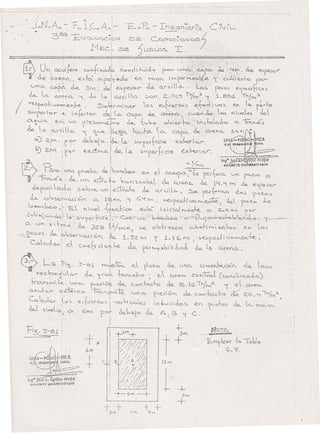 U.N.A. - F.I.C.A. - E.P. - Ingeniería Civil
3era Evaluación de Capacidades
Mec. de Suelos I.
1. Un acuífero confinado constituido por una capa de 4m. de espesor
de arena, está apoyado en roca impermeable y cubierto por
una capa de 3m. de espesor de arcilla. Los pesos específicos
de la arena y de la arcilla son 2.015 Tn/m³ y 1.856 Tn/m³
respectivamente. Determinar los esfuerzos efectivos en la parte
superior e inferior de la capa de arena, cuando los niveles del
agua en un piezómetro de tubo abierto instalados a través
de la arcilla y que llega hasta la capa de arena son:
a) 2m. por debajo de la superficie exterior.
b) 2m. por encima de la superficie exterior.
2. Para una prueba de bombeo en el campo se perfora un pozo a
través de un estrato horizontal de arena de 14.4 m de espesor
depositado sobre un estrato de arcilla, se perforan dos pozos
de observación a 18m y 64m, respectivamente, del pozo de
bombeo. El nivel freático está inicialmente a 2.2m. por
debajo de la superficie.
a un ritmo de 328 lt/min, se obtienen abatimientos en los
pozos de observación de 1.92 m y 1.16 m, respectivamente.
Calcular el coeficiente de permeabilidad de la arena.
3. La Fig. 3-01 muestra el plano de una cimentación de losa
rectangular de gran tamaño; el área central (sombreada)
transmite una presión de contacto de 8.16 Tn/m² y el área
exterior transmite una presión de contacto de 20.4 Tn/m².
Calcular los esfuerzos verticales inducidos en puntos de la masa
del suelo, a 6m por debajo de A, B y C.
Fig. 3-01
NOTA
Emplear la Tabla
6.7.